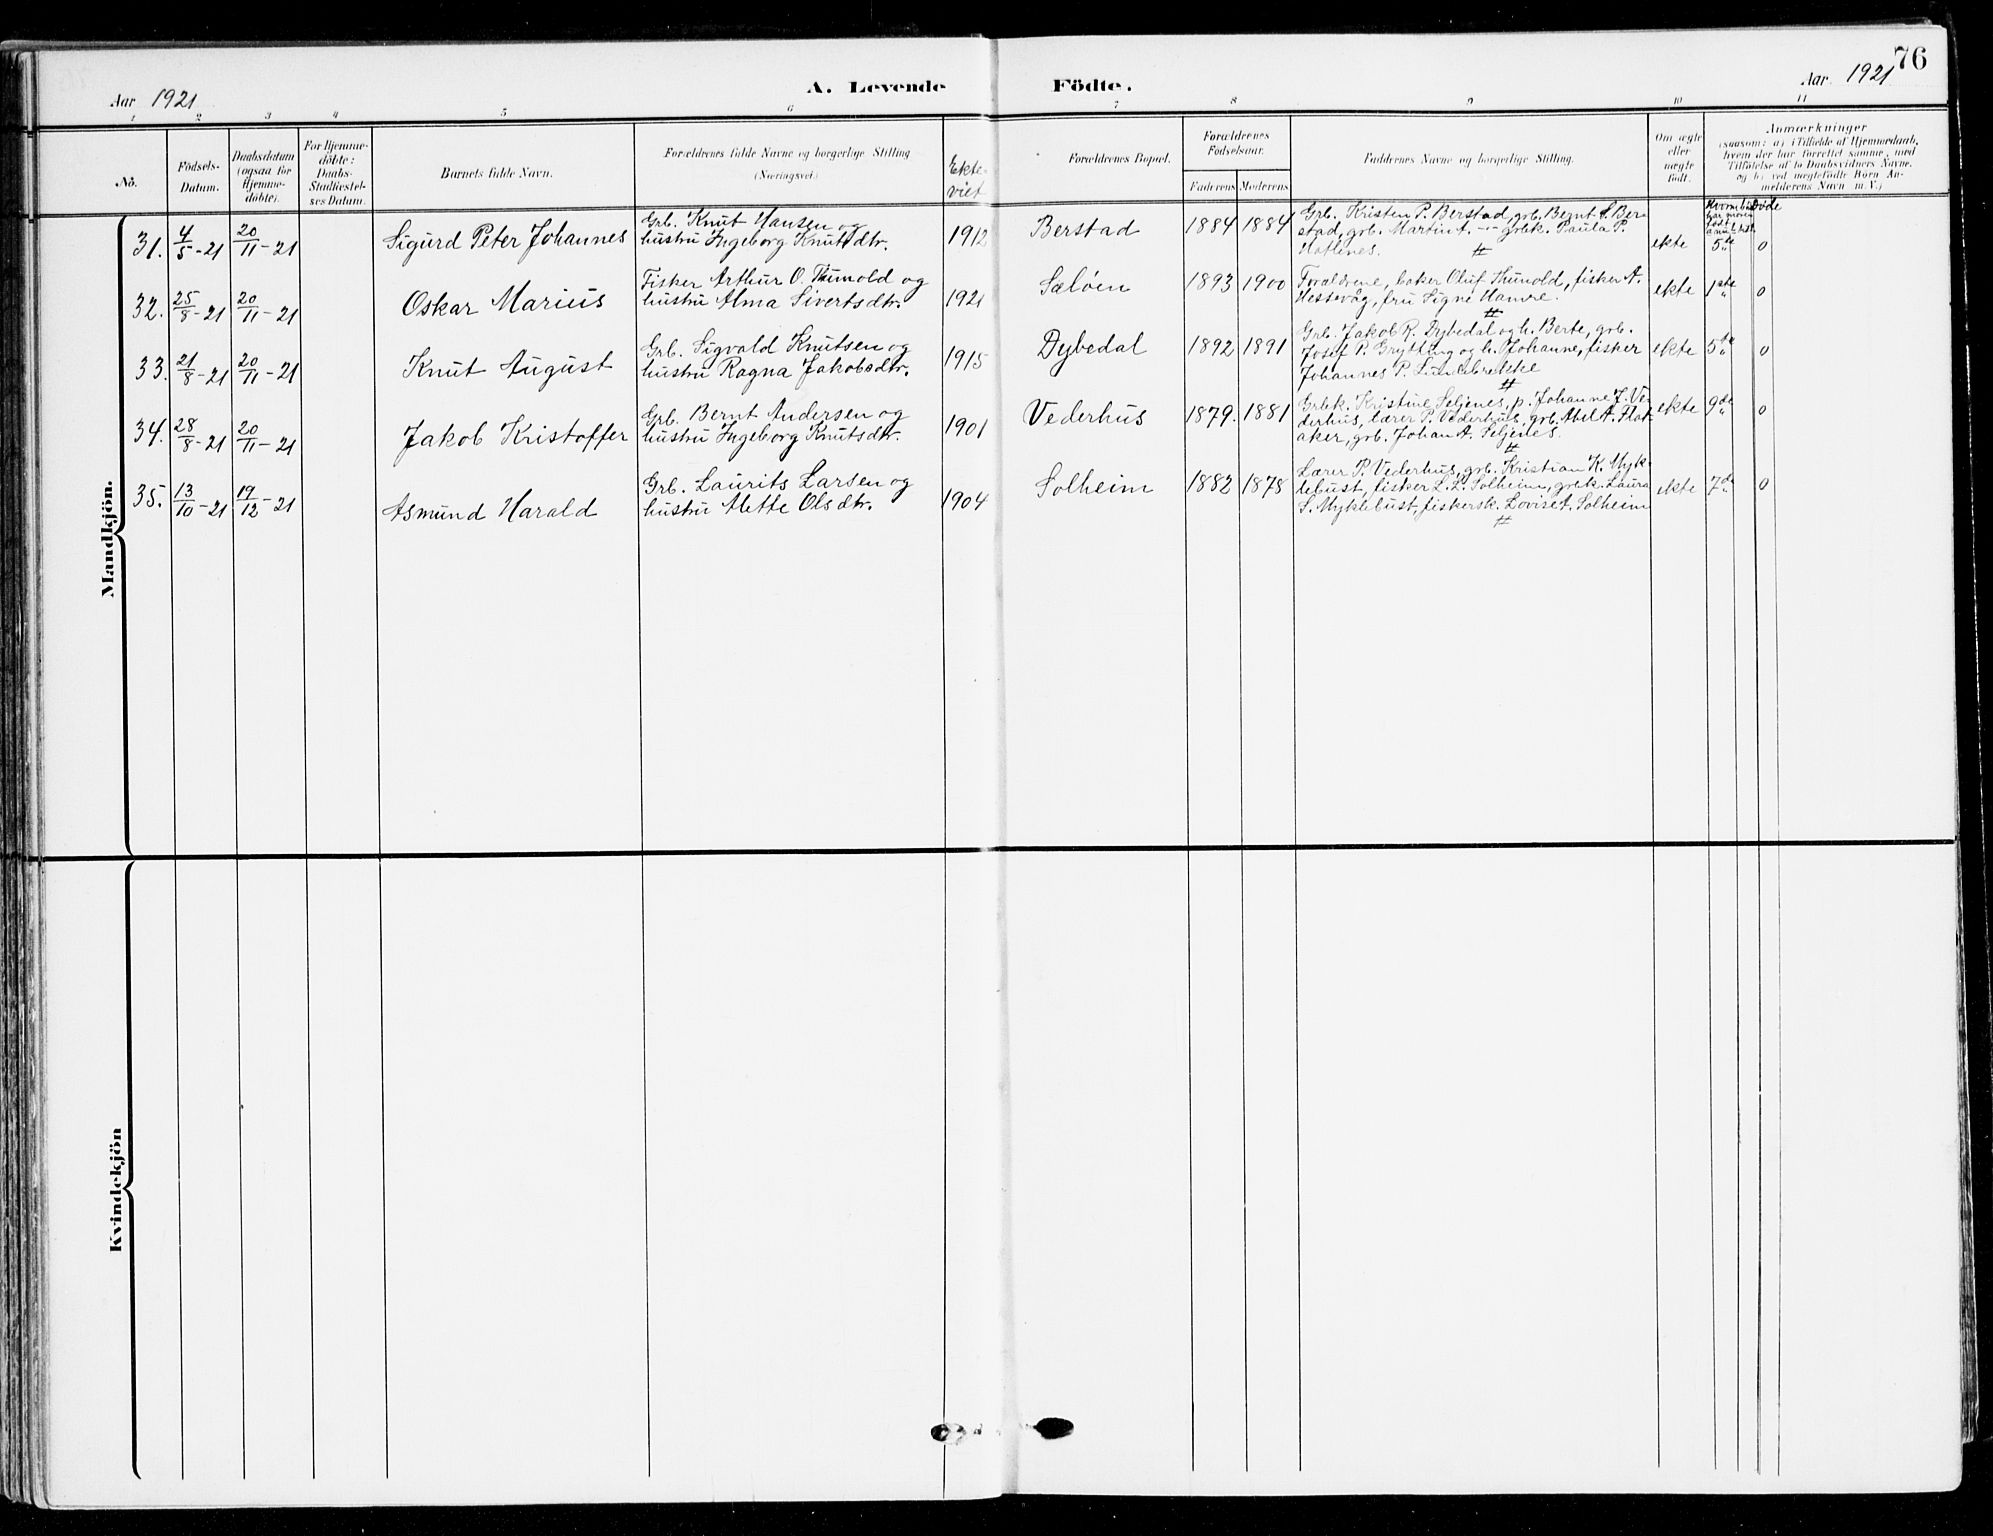 76
Aar 1921
A. Levende Födte.
Aar. 1921
1 2 3 4 5 6 7 8 9 10 11
No.
Födsels-
Datum.
Daabsdatum
(ogsaa for
Hjemme-
døbte).
For Hjemme-
döbte:
Daabs-
Stadfæstel-
ses Datum.
Barnets fulde Navn.
Forældrenes fulde Navne og borgerlige Stilling
(Næringsvei.)
Ekte-
viet
Forældrenes Bopæl.
Forældrenes
Födselsaar.
Faderens Moderens
Faddernes Navne og borgerlige Stilling.
Om ægte
eller
uægte
født.
Anmærkninger
(saasom: a) i Tilfælde af Hjemmedaab,
hvem der har forrettet samme, med
Tilføielse af to Daabsvidners Navne.
og b) ved uægtefødte Börn An-
melderens Navn m. V.)
Mandkjön.
31. 4/5-21 20/11-21
Sigurd Peter Johannes
Grb. Knut Hansen og
hustru Ingeborg Knutsdtr.
1912
Berstad
1884 1884
Grb. Kristen P. Berstad, grb. Bernt S. Ber-
stad, grb. Martin A. -"- grbk. Paula P.
Hatlenes.
#
ekte
har moren
født
5te
døde
0
32. 25/8-21 20/11-21
Oskar Marius
Fisker Arthur O. Thunold og
hustru Alma Sivertsdtr.
1921
Sæløen
1893 1900
Forældrene, baker Oluf Thunold, fisker A.
Hessevåg, fru Signe Hamre.
#
ekte
1ste
0
33. 21/8-21 20/11-21
Knut August
Grb. Sigvald Knutsen og
hustru Ragna Jakobsdtr.
1915
Dybedal
1892 1891
Grb. Jakob R. Dybedal og h. Berte, grb.
Josef P. Grytting og h. Johanne, fisker
Johannes P. Lundebrekke
#
ekte
5te
0
34. 28/8-21 20/11-21
Jakob Kristoffer
Grb. Bernt Andersen og
hustru Ingeborg Knutsdtr.
1901
Vederhus
1879. 1881
Grbk. Kristine Seljenes, p. Johanne J. Ve-
derhus, lærer P. Vederhus, grb. Abel A. Flat-
aker, grb. Johan A. Seljenes.
#
ekte
9de
0
35. 13/10-21 19/12-21
Asmund Harald
Grb. Laurits Larsen og
hustru Mette Olsdtr.
1904
Solheim
1882 1878
Lærer P. Vederhus, grb. Kristian K. Myk-
lebust, fisker L. L. Solheim, grbk. Laura
S. Myklebust, fiskersk. Lovise A. Solheim
#
ekte
7de
0
Kvindekjön